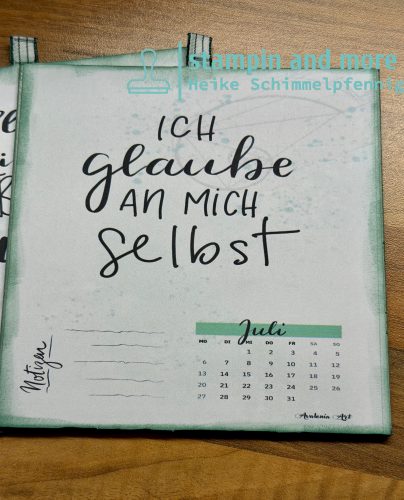 stampin and more
Heike Schimmelpfennig
ICH
glaube
AN MICH
selbst
Notizen
Juli
MO DI MI DO FR SA SO
1 2 3 4 5
6 7 8 9 10 11 12
13 14 15 16 17 18 19
20 21 22 23 24 25 26
27 28 29 30 31
Avalenia Art